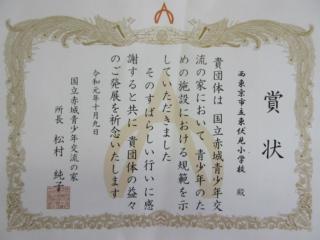 賞状
西東京市立東伏見小学校 殿
貴団体は 国立赤城青少年交
流の家において 青少年のた
めの施設における規範を示
していただきました
そのすばらしい行いに感
謝すると共に 貴団体の益々
のご発展を祈念いたします
令和元年十月九日
国立赤城青少年交流の家
所長 松村 純子